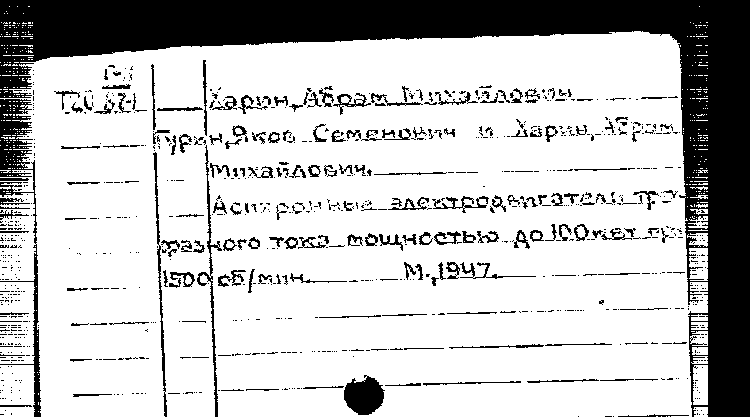 Харин, Абрам Михайлович
Гурин, Яков Семенович и Харин, Абрам
Михайлович.
Асинхронные электродвигатели трех-
фазного тока мощностью до 100 квт при
1500 об/мин. М., 1947.